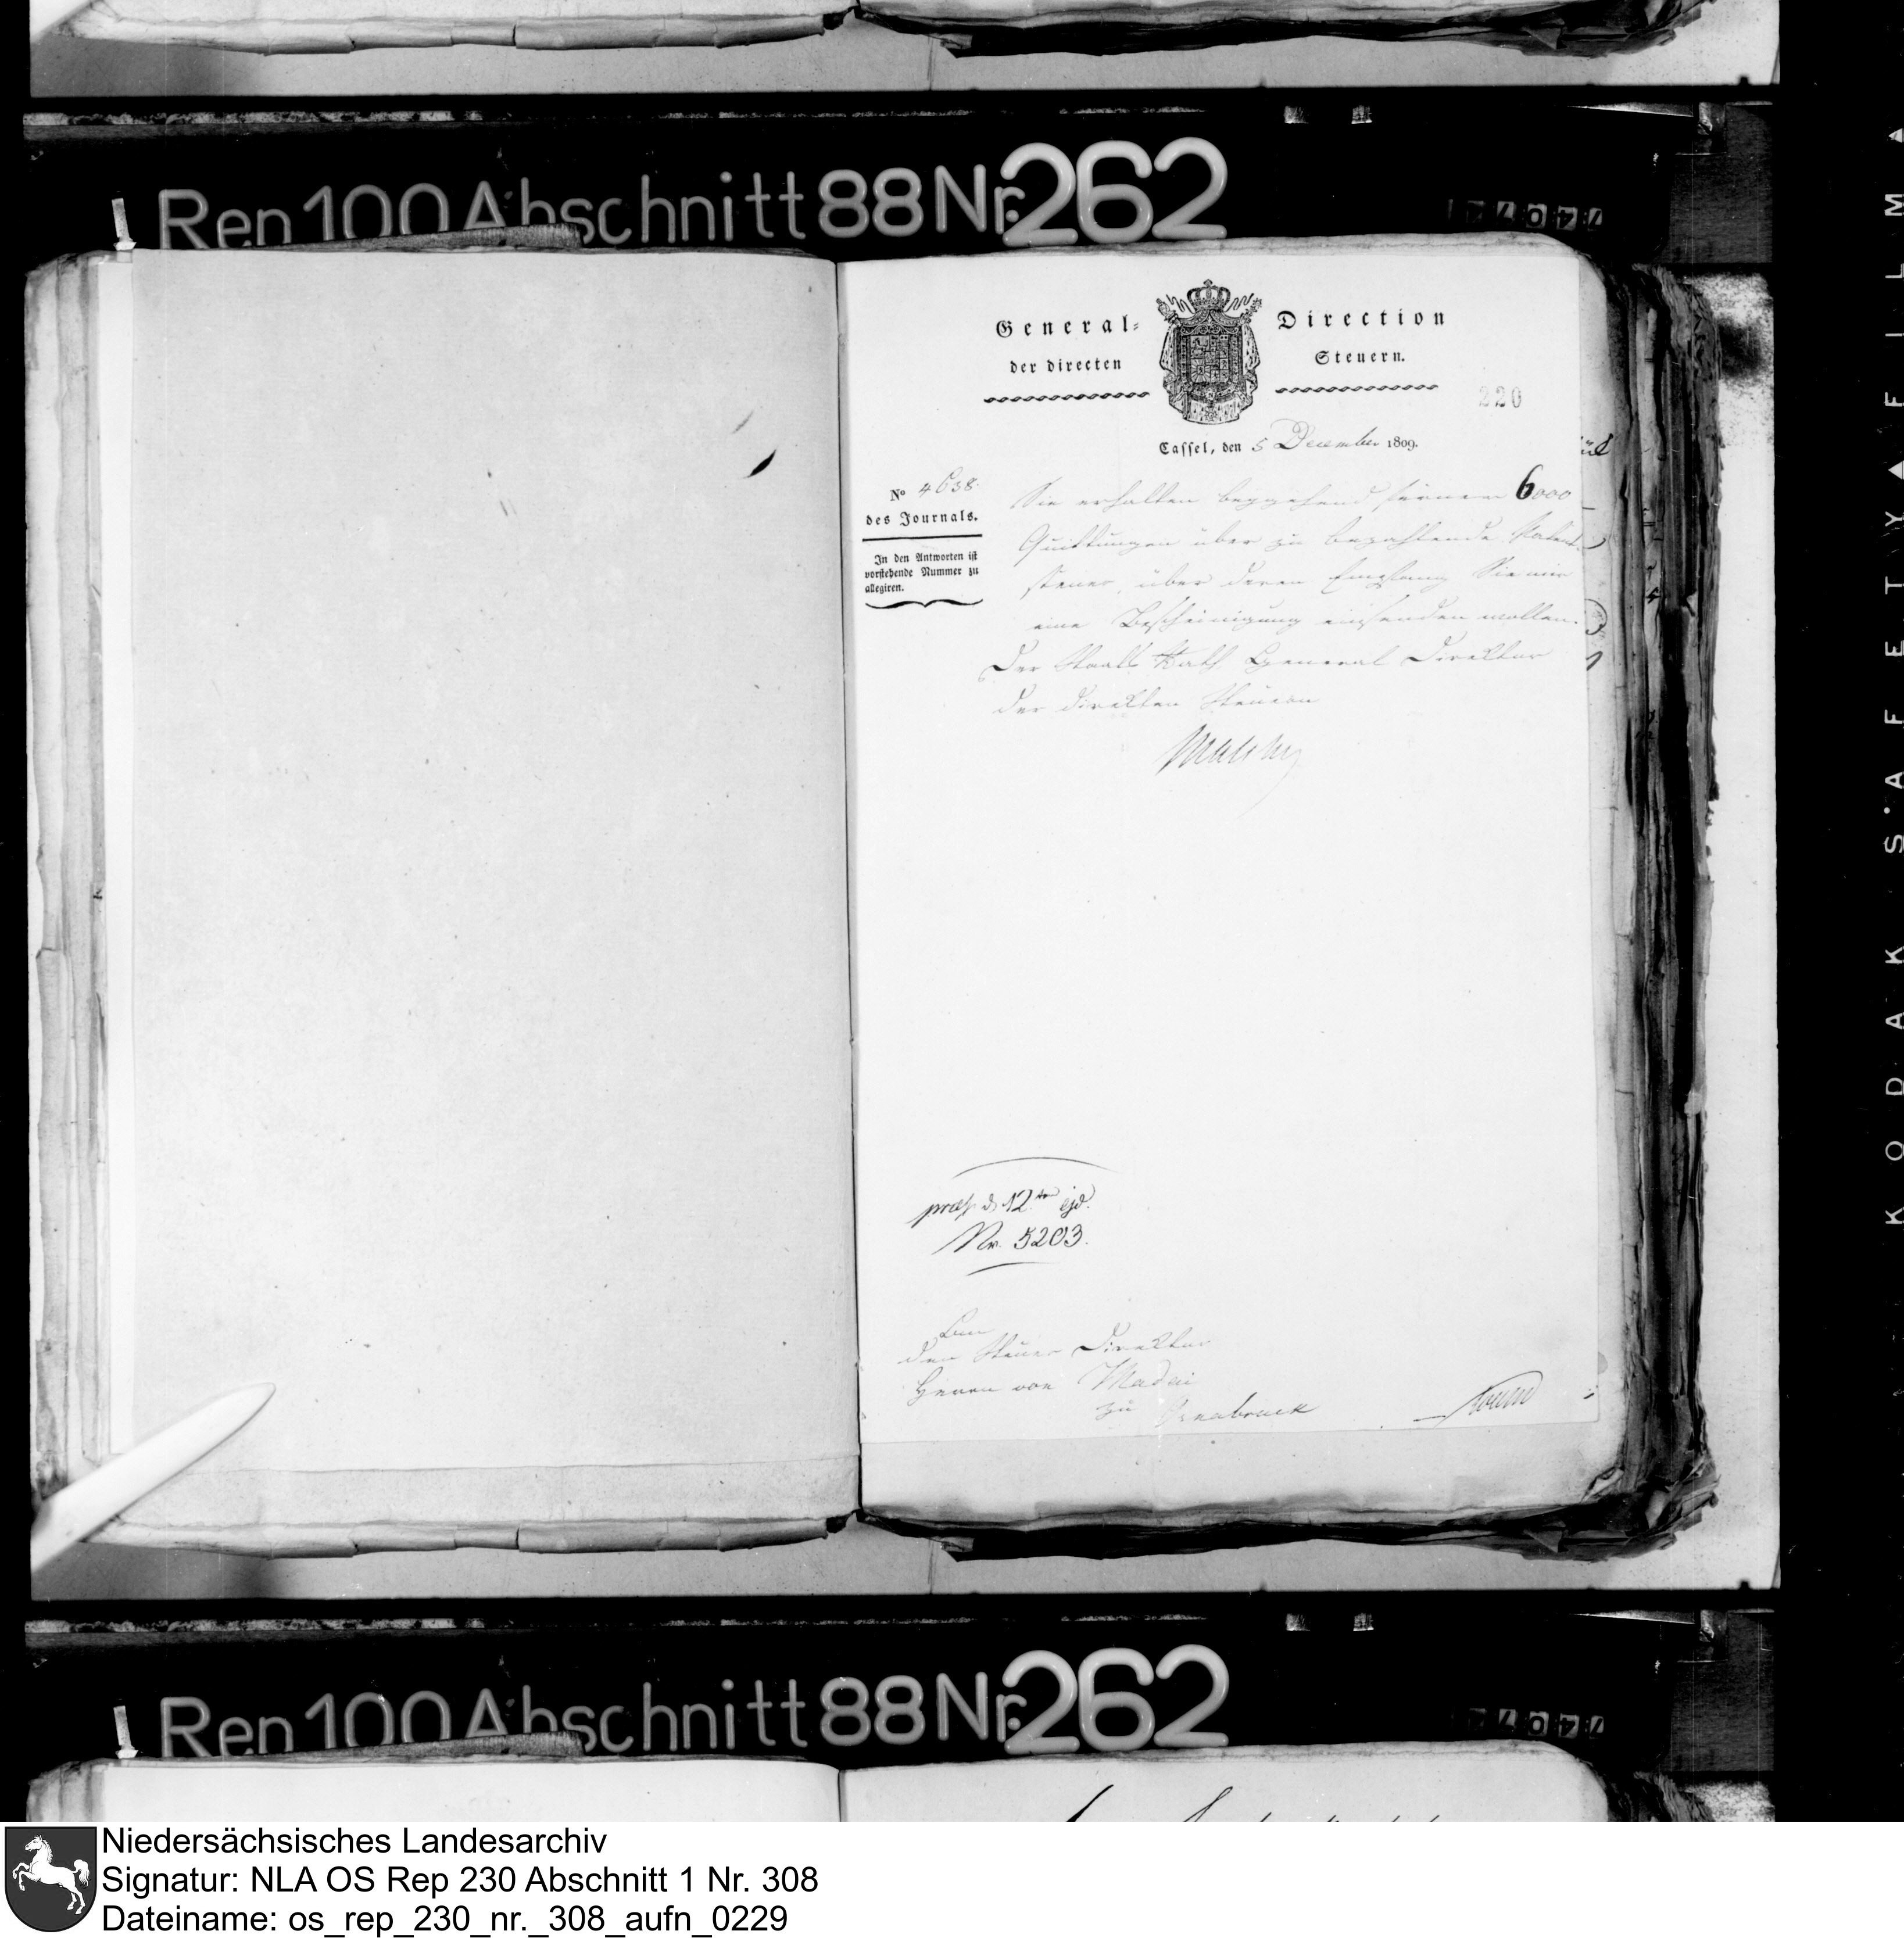 Rep 100 Abschnitt 88 Nr. 262
General= Direction
der directen Steuern.
220
Cassel, den 5 December 1809.
No 4638.
des Journals.
In den Antworten ist
vorstehende Nummer zu
allegiren.
Sie erhalten beygehend ferner 6000
Quittungen über zu bezahlende Patent-
steuer, über deren Empfang Sie mir
eine Bescheinigung einsenden wollen.
Der Staats Rath General Direktor
der direkten Steuern
Malchus
præs. d. 12ten ejd.
Nr. 5203.
den Steuer Direktor
Herrn von Madai
zu Osnabrück
Rep 100 Abschnitt 88 Nr. 262
KODAK SAFETY FILM
Niedersächsisches Landesarchiv
Signatur: NLA OS Rep 230 Abschnitt 1 Nr. 308
Dateiname: os_rep_230_nr._308_aufn_0229